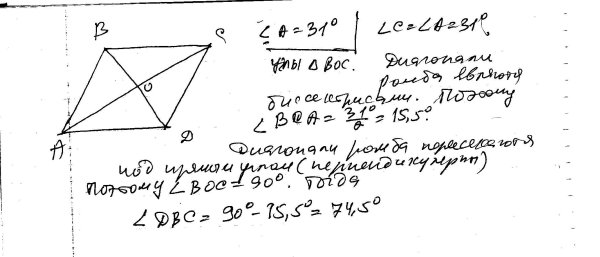 B C
∠A = 31° ∠C = ∠A = 31°.
углы △BOC. Диагонали
O ромба являются
биссектрисами. Поэтому
∠BCA = 31°/2 = 15,5°.
A D
Диагонали ромба пересекаются
под прямым углом (перпендикулярны)
Поэтому ∠BOC = 90°. Тогда
∠DBC = 90° - 15,5° = 74,5°